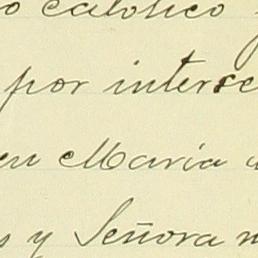 o catolico
por interse
en Maria
y Señora n